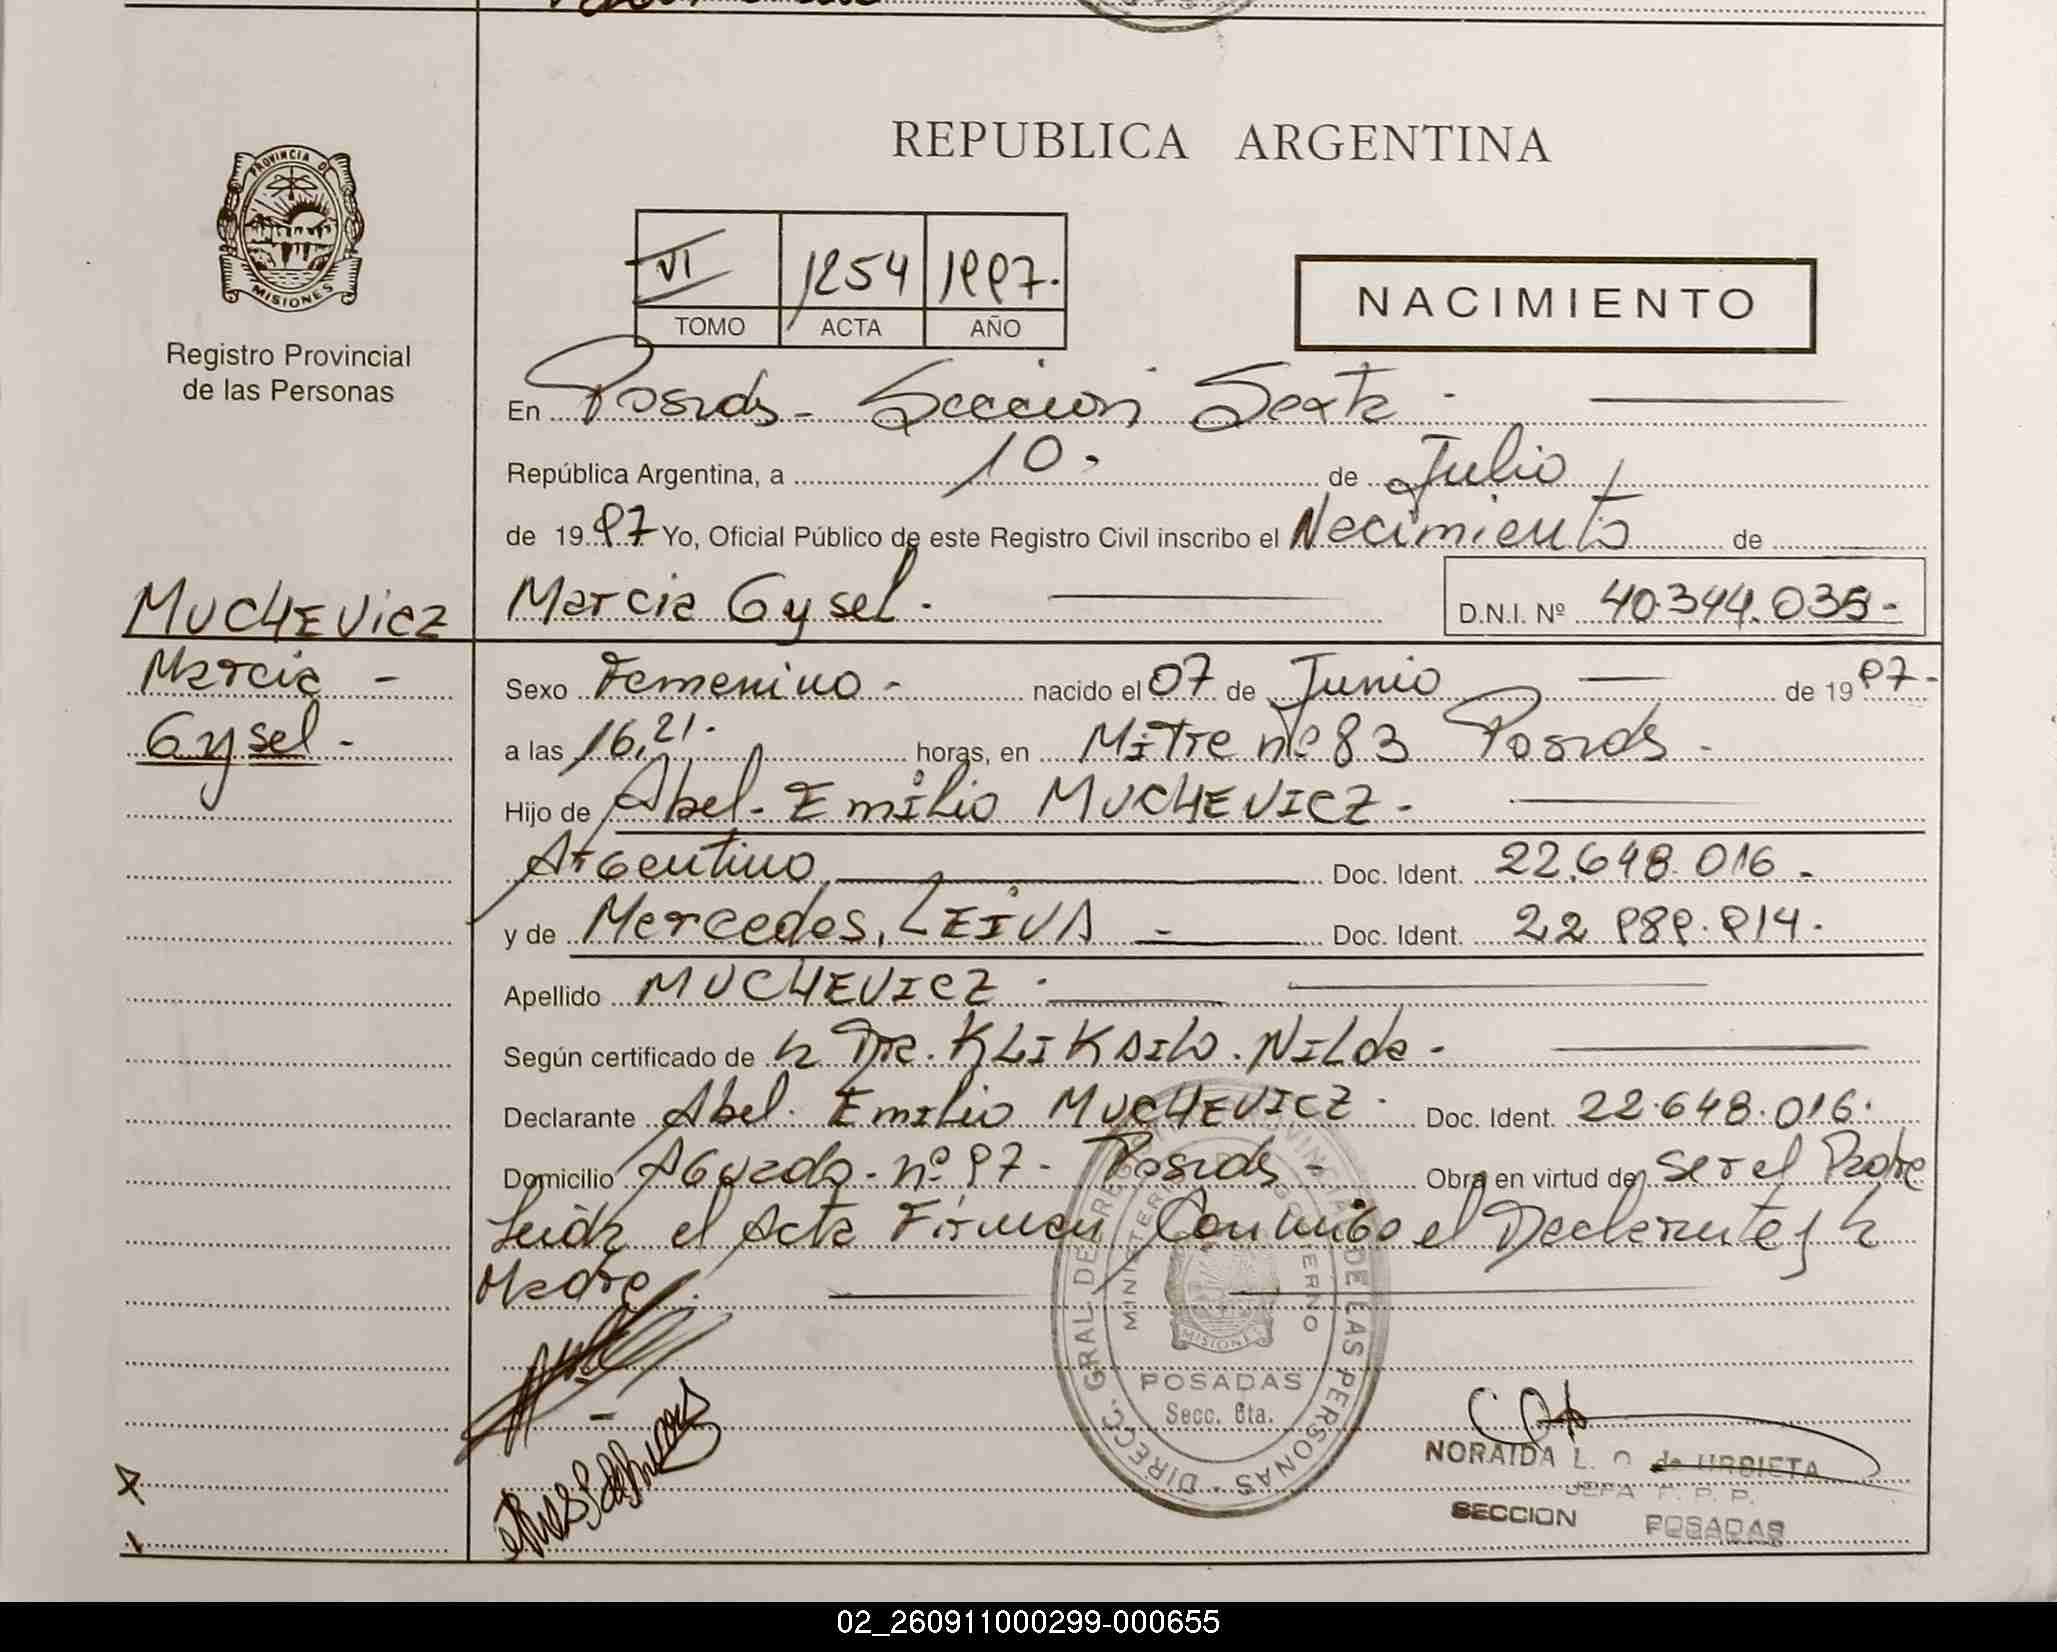 REPUBLICA ARGENTINA
PROVINCIA DE
MISIONES
Registro Provincial
de las Personas
VI 1254 1997.
TOMO ACTA AÑO
NACIMIENTO
En Posadas - Seccion Sexta -
República Argentina, a 10. de Julio
de 1997 Yo, Oficial Público de este Registro Civil inscribo el Nacimiento de
MUCHEVicz
Marcia Gysel. D.N.I. Nº 40.344.035-
Marcia -
Gysel -
Sexo Femenino - nacido el 07 de Junio de 1997-
a las 16,21. horas, en Mitre nº 83 Posadas -
Hijo de Abel - Emilio MUCHEVICZ -
Argentino Doc. Ident. 22.648.016 -
y de Mercedes, LEIVA - Doc. Ident. 22 989.914.
Apellido MUCHEVICZ -
Según certificado de la Dra. Nilda -
Declarante Abel. Emilio MUCHEVICZ - Doc. Ident. 22.648.016.
Domicilio nº 97 - Posadas - Obra en virtud de ser el Padre
Leida el Acta Firman Conmigo el Declarante y la
Madre.
DIRECC. GRAL DE REG PROVINCIAL DE LAS PERSONAS
MINISTERIO DE GOBIERNO
MISIONES
POSADAS
Secc. 6ta.
NORAIDA L. O. de URBIETA
JEFA R. P. P.
SECCION POSADAS
02_260911000299-000655